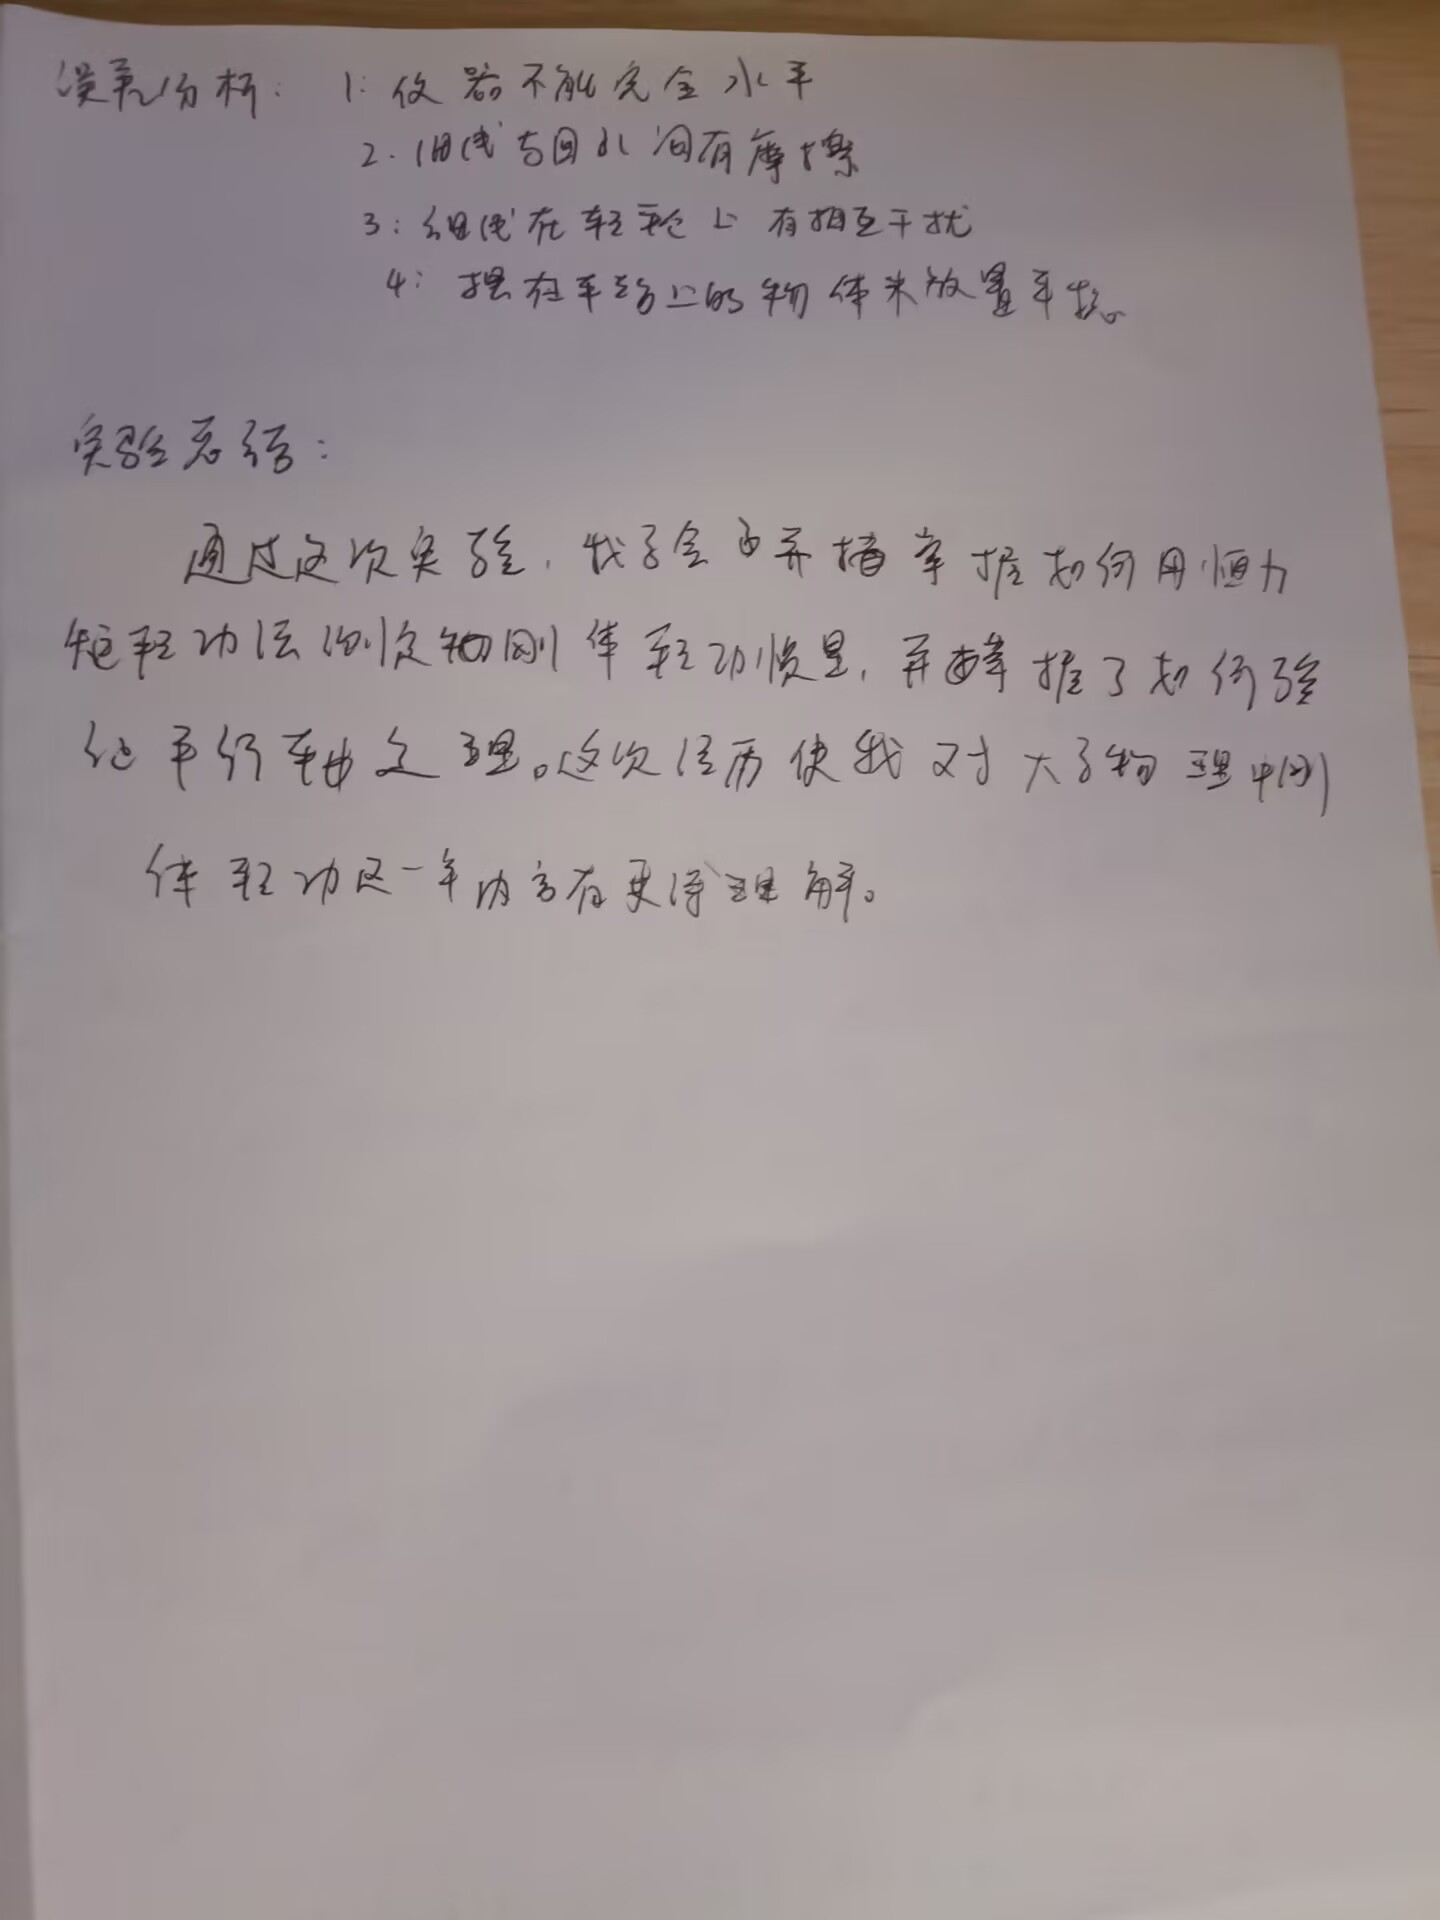 误差分析: 1: 仪器不能完全水平
2. 细线与圆孔间有摩擦
3: 细线在转轮上有相互干扰
4: 摆在平台上的物体未放置平稳。
实验总结:
通过这次实验,我学会并掌握如何用恒力
矩转动法测定物刚体转动惯量,并掌握了如何验
证平行轴定理。这次经历使我对大学物理中刚
体转动这一章内容有更深理解。